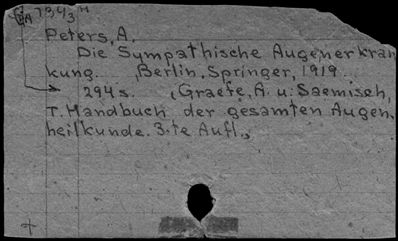 7343
Peters, A.
Die Sympathische Augenerkran
kung. Berlin, Springer, 1919.
294 s. (Graefe, A. u. Saemisch,
T. Handbuch der gesamten Augen.
heilkunde. 3.te Aufl.,